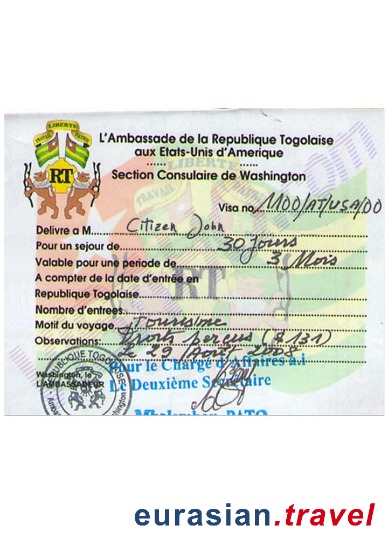 LIBERTE
TRAVAIL PATRIE
RT
L'Ambassade de la Republique Togolaise
aux Etats-Unis d'Amerique
Section Consulaire de Washington
Visa no. MOO/AT/USA/00
Delivre a M. Citizen John
Pour un sejour de 30 Jours
Valable pour une periode de 3 Mois
A compter de la date d'entrée en
Republique Togolaise
Nombre d'entrees
Motif du voyage Tourisme
Observations: Droits perçus ($131)
le 29 Août
Pour le Chargé d'Affaires a.i
Washington, le
Le Deuxième Secrétaire
L'AMBASSADEUR
REPUBLIQUE TOGOLAISE
eurasian.travel